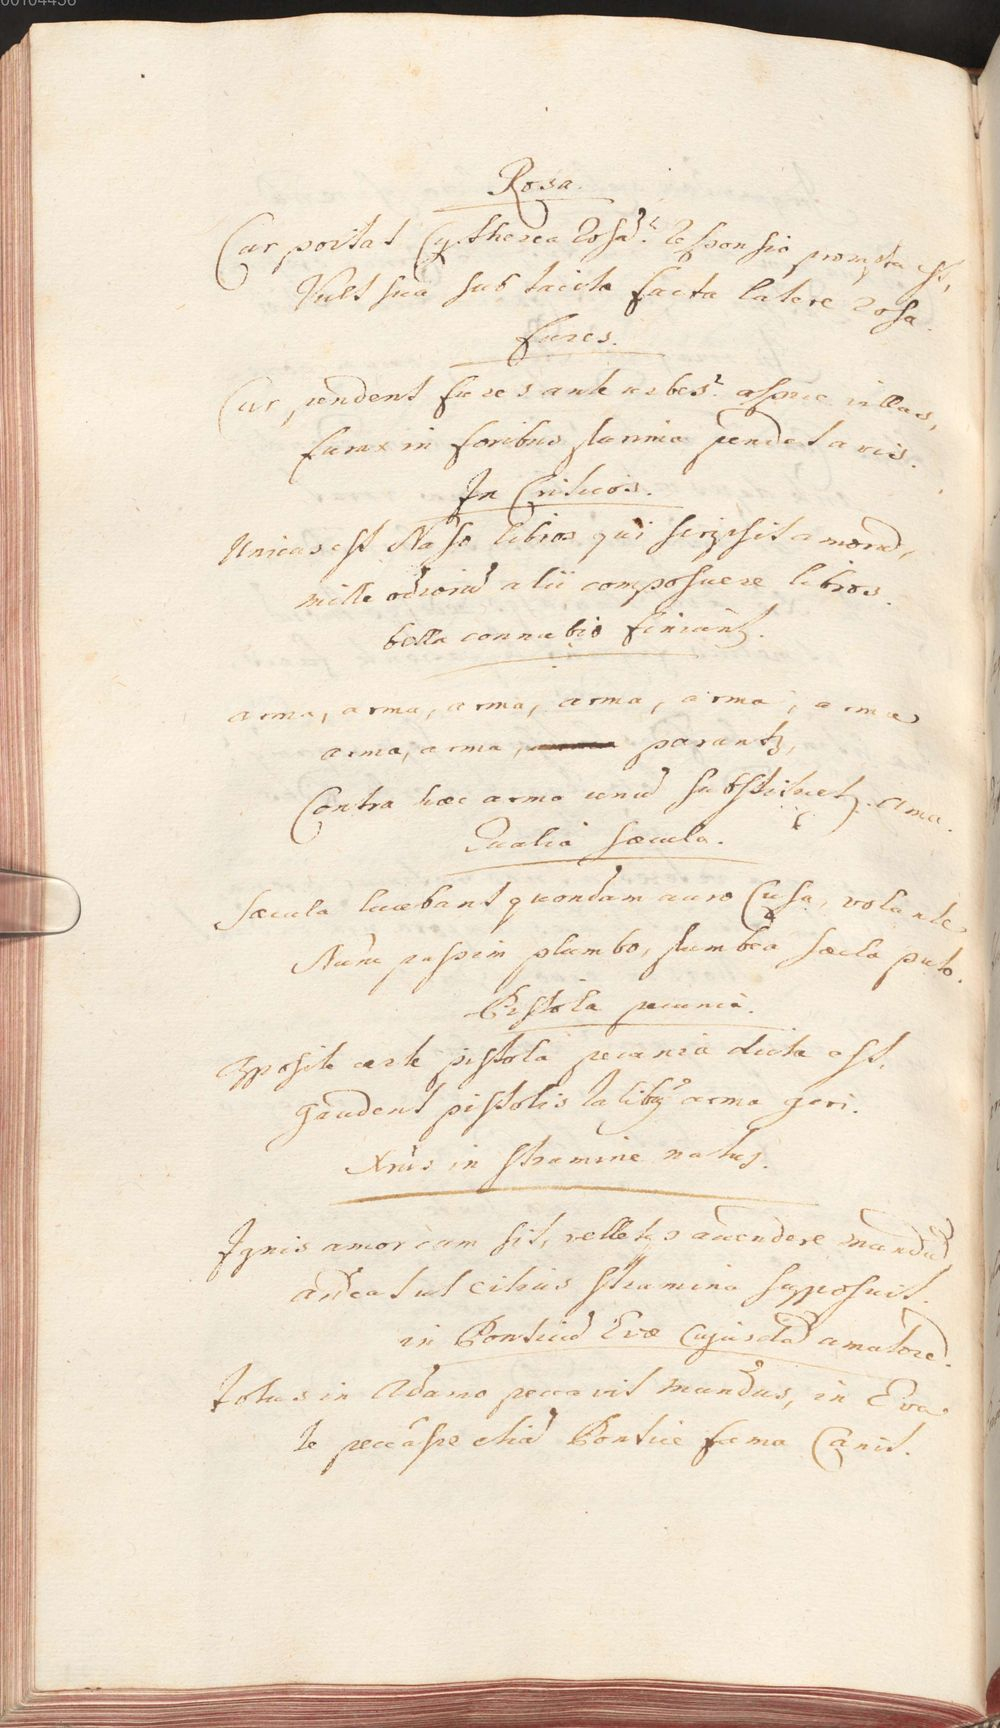 00104436
Rosa.
Cur portat Cytherea rosã? responsio prompta est,
Vult sua sub tacita facta latere rosa.
fures.
Cur pendent fures ante urbes? aspice villas,
furax in foribus plurima pendet avis.
In Criticos.
Unicus est Naso libros qui scripsit amorũ,
mille odiorũ alii composuere libros.
bella connubio finiunt.
arma, arma, arma, arma, arma, arma
arma, arma, parant,
Contra hæc arma unũ substituet. ama.
Qualia sæcula.
Sæcula lucebant quondam auro Cusa, volante
Nunc passim plumbo, plumbea sæcla puto.
Pistola pecunia.
Apposite certe pistola pecunia dicta est,
gaudent pistolis talibus arma geri.
Xr̃us in stramine natus.
Ignis amor cum sit, velletque accendere mundũ
ardeat ut citius stramina supposuit.
in Ponticũ Evæ cujusdã amatorẽ.
Totus in Adamo peccavit mundus, in Eva
te peccasse etiã Pontice fama Canit.